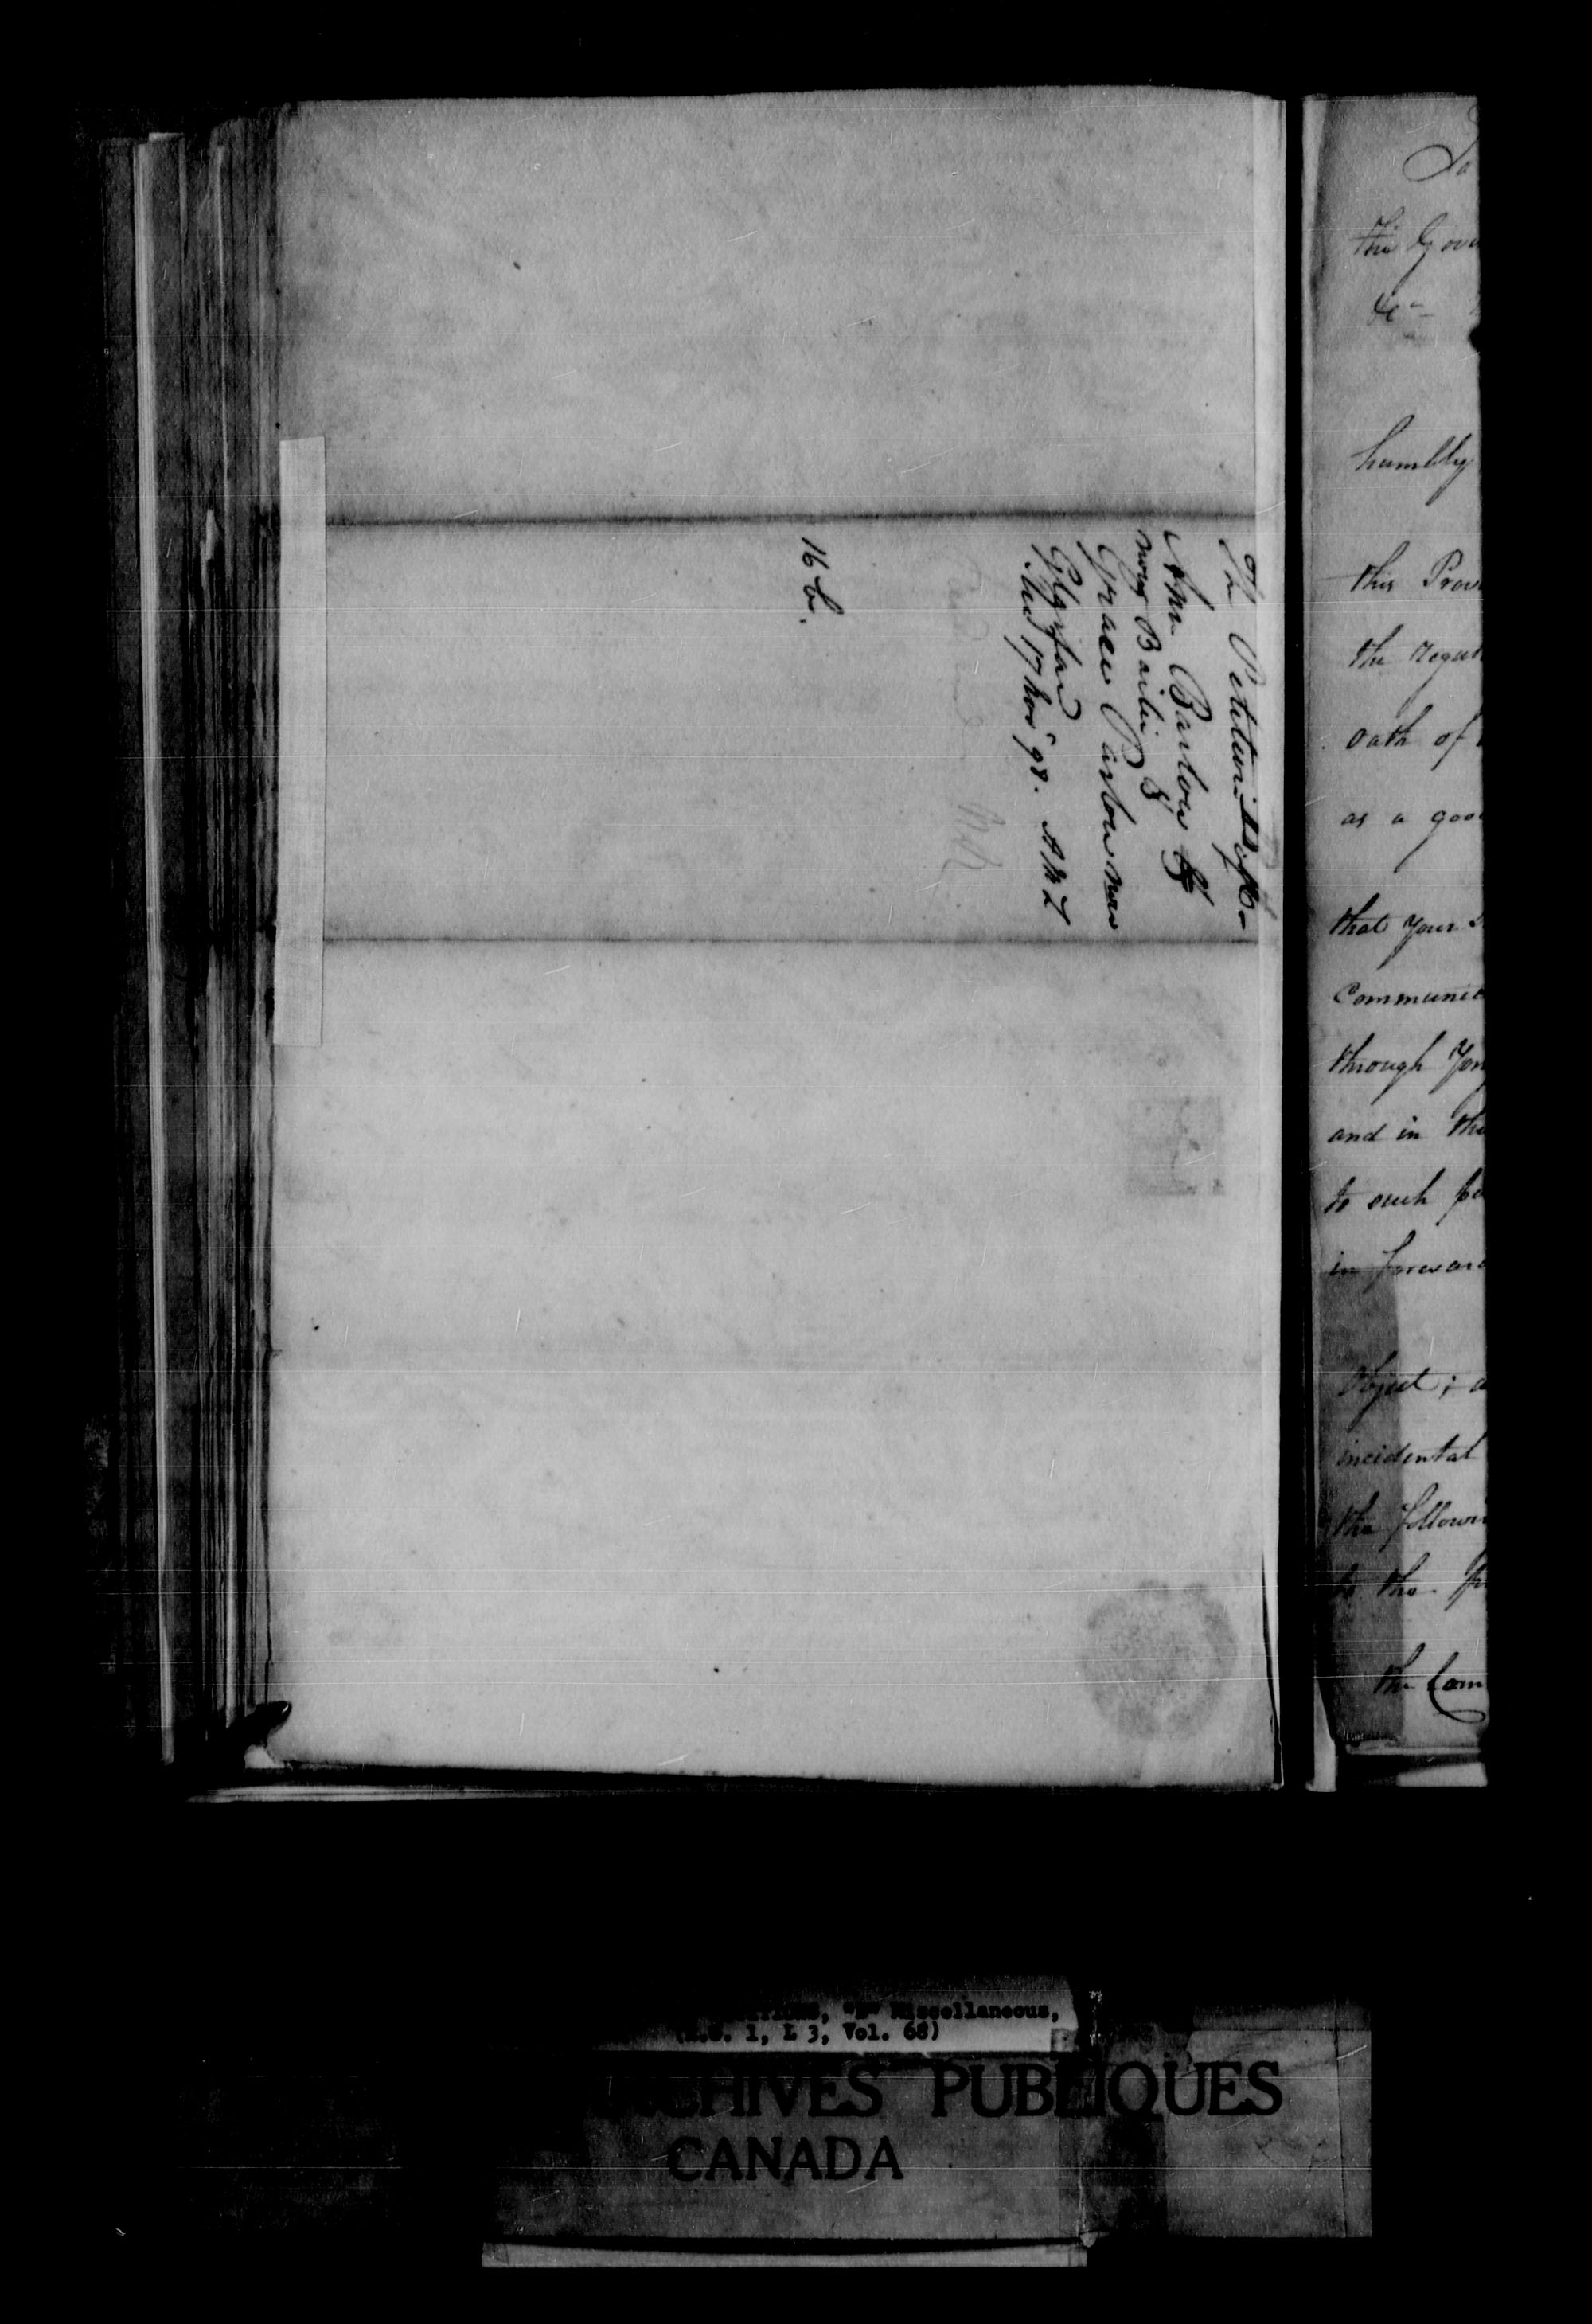 The Petition of
Ann Barlow &
now Bailie &
Grace Barlow now
Glyfard
Recd 17 Nov '98. A M L
16 b.
To
The Gove
&c
humbly
this Prov
the requi
Oath of
as a goo
that Your
Communic
through Yon
and in the
to such pe
in forward
Object; a
incidental
the followi
to the
the Com
Miscellaneous,
1, L 3, Vol. 68)
ARCHIVES PUBLIQUES
CANADA